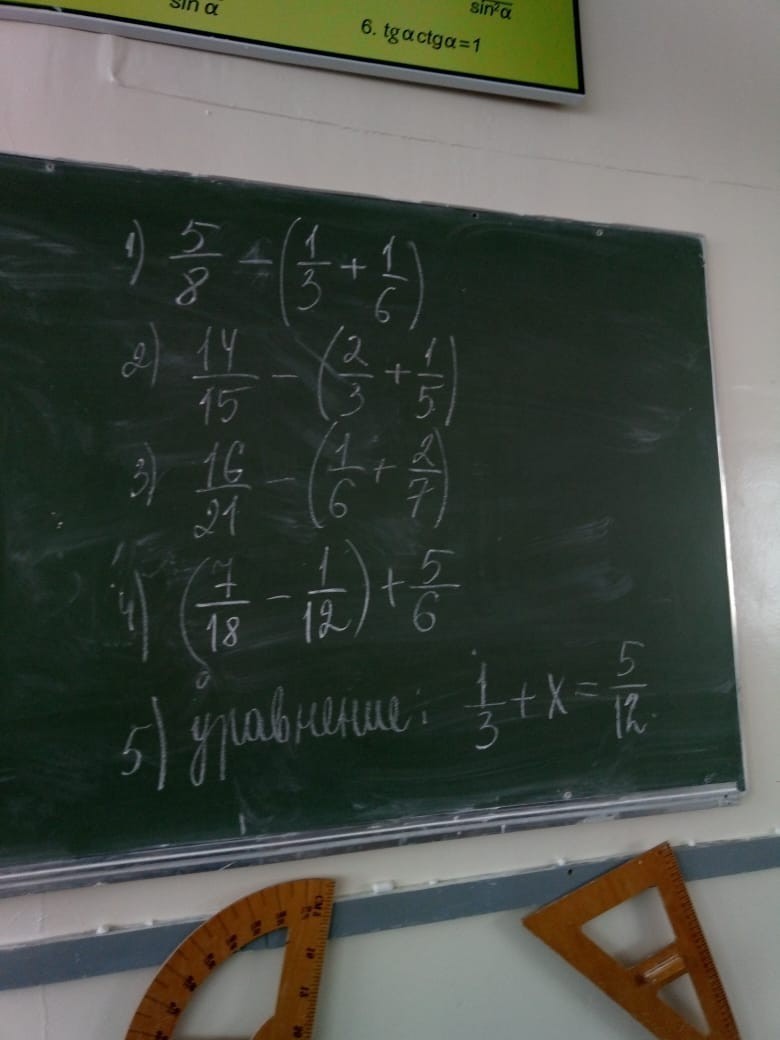 sin α
sin²α
6. tgαctgα=1
1) 5/8 - (1/3 + 1/6)
2) 14/15 - (2/3 + 1/5)
3) 16/21 - (1/6 + 2/7)
4) (7/18 - 1/12) + 5/6
5) уравнение: 1/3 + x = 5/12.